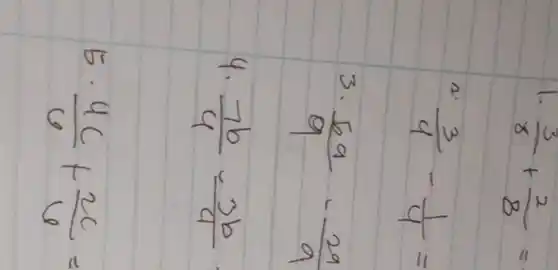 1. 3/8 + 2/8 =
2. 3/4 - 1/4 =
3. 5a/9 - 2a/9
4. 7b/4 - 3b/4 -
5. 4c/6 + 2c/6 =